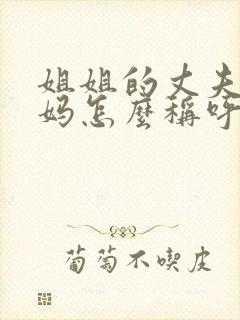 姐姐的丈夫
妈怎麼稱呼
葡萄不喫皮